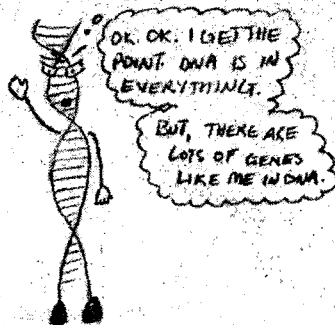 OK. OK. I GET THE
POINT DNA IS IN
EVERYTHING.
BUT, THERE ARE
LOTS OF GENES
LIKE ME IN DNA.